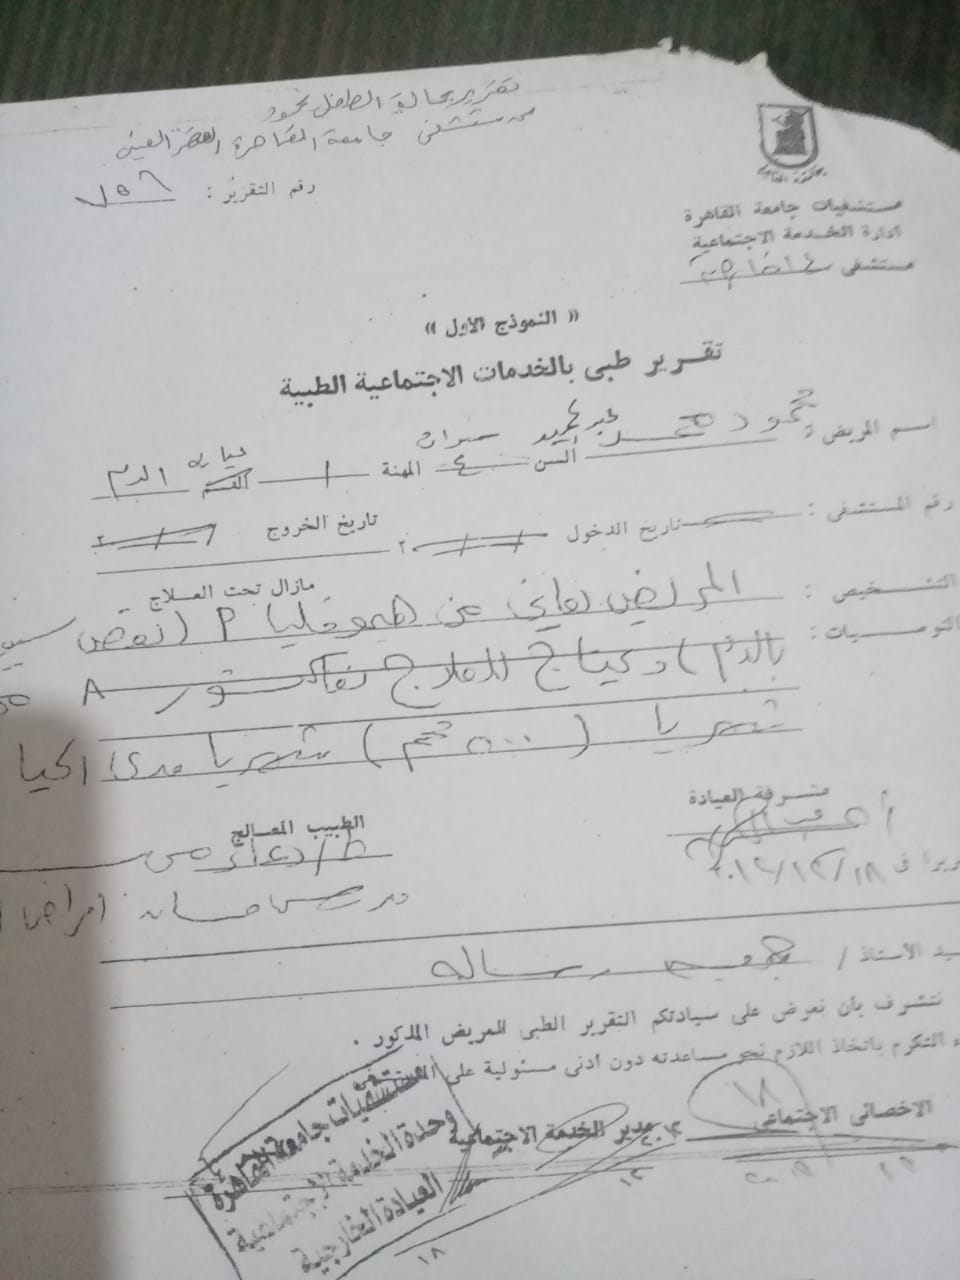 تقرير بحالة الطفل محمود
مستشفى جامعة القاهرة القصر العينى
رقم التقرير :
جامعة القاهرة
مستشفيات جامعة القاهرة
ادارة الخدمة الاجتماعية
مستشفى
« النموذج الاول »
تقرير طبى بالخدمات الاجتماعية الطبية
اسم المريض : محمود محمد
السن ٤ سنوات المهنة / القسم عيادة الدم
رقم المستشفى : تاريخ الدخول ٢ تاريخ الخروج ٢
مازال تحت العلاج
التشخيص : المريض يعانى من هيموفيليا P (نقص
التوصيات : بالدم) ويحتاج للعلاج بفاكتور A
شهريا (٥٠٠ ) شهريا مدى الحيا
مشرفة العيادة
الطبيب المعالج
د/ دعاء
مدرس مساعد أمراض
ريرا فى ١٨/١٢/٢٠١٢
سيد الاستاذ / جمعية رسالة
نتشرف بان نعرض على سيادتكم التقرير الطبى للمريض المذكور .
ء التكرم باتخاذ اللازم نحو مساعدته دون ادنى مسئولية على المستشفى
الاخصائى الاجتماعى
مدير الخدمة الاجتماعية
مستشفيات جامعة القاهرة
وحدة الخدمة الاجتماعية
العيادة الخارجية
١٨
١٢
١٨